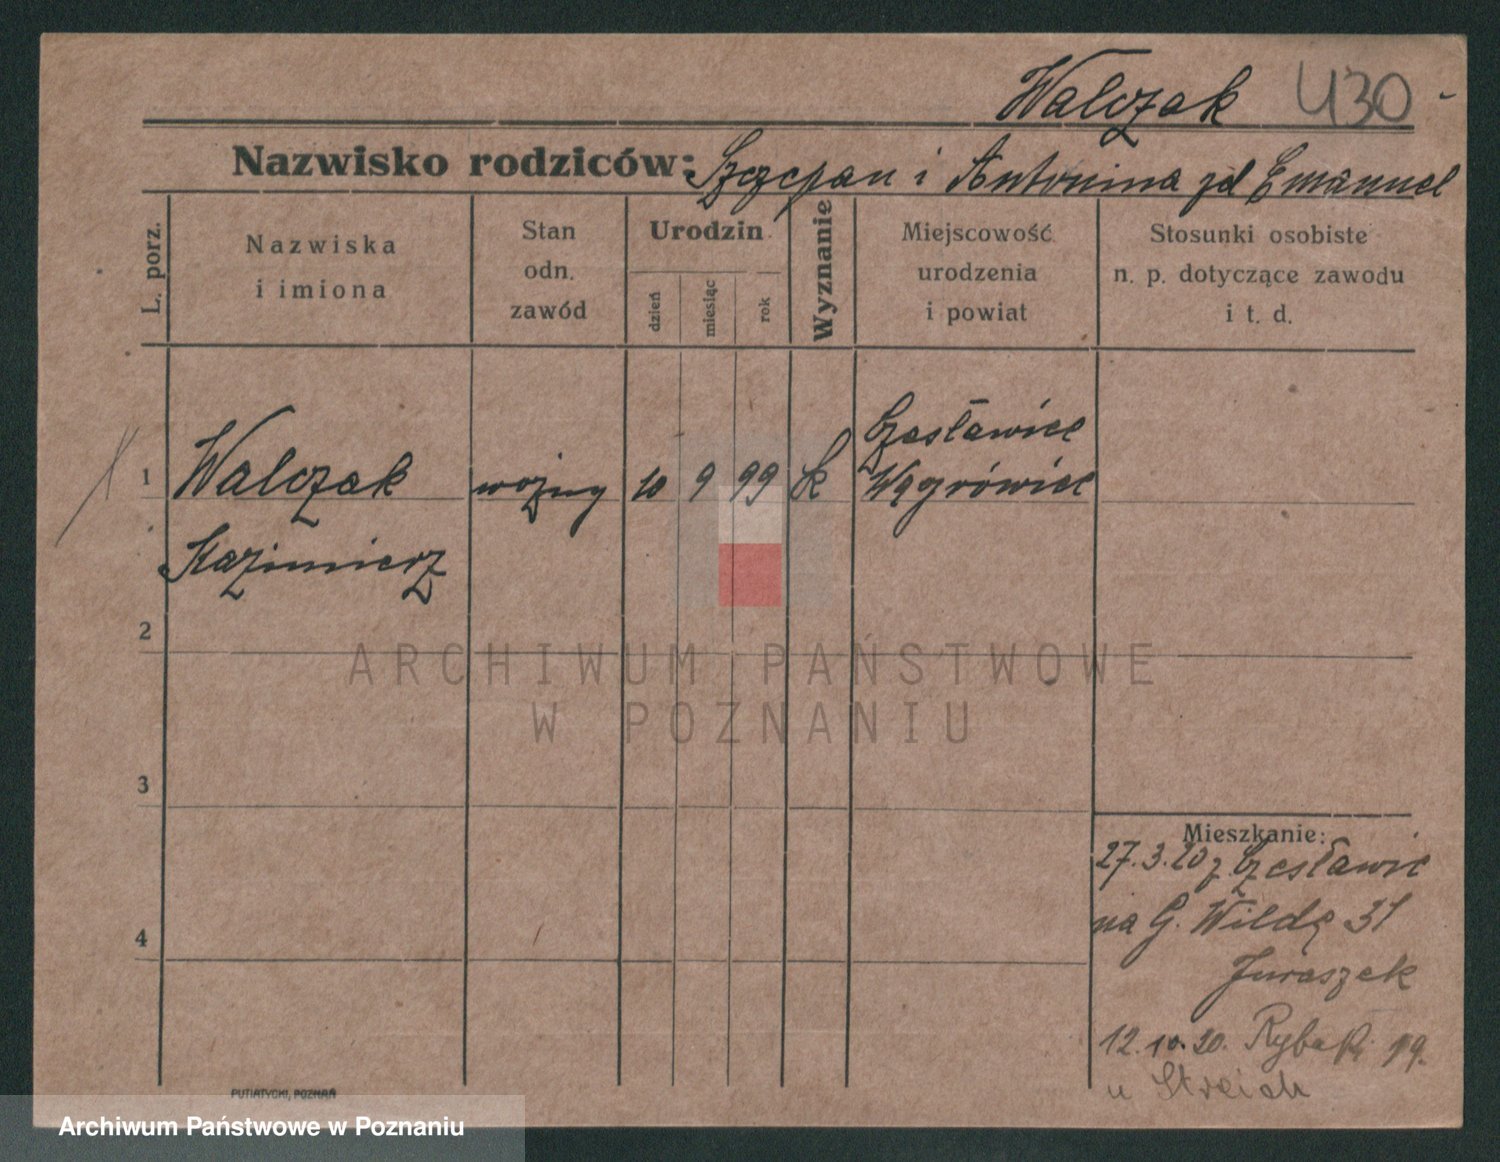 Walczak 430
Nazwisko rodziców: Szczepan i Antonina zd Emanuel
L. porz.
Nazwiska
i imiona
Stan
odn.
zawód
Urodzin
dzień
miesiąc
rok
Wyznanie
Miejscowość
urodzenia
i powiat
Stosunki osobiste
n. p. dotyczące zawodu
i t. d.
1 Walczak woźny 10 9 99 k Czesławice
Wągrówiec
Kazimierz
2
ARCHIWUM PAŃSTWOWE
W POZNANIU
3
Mieszkanie:
27.3.20 z Czesławic
na G. Wildę 31
Juraszek
4
12.10.20. Rybaki 19.
u Streich
PUTIATYCKI, POZNAŃ
Archiwum Państwowe w Poznaniu